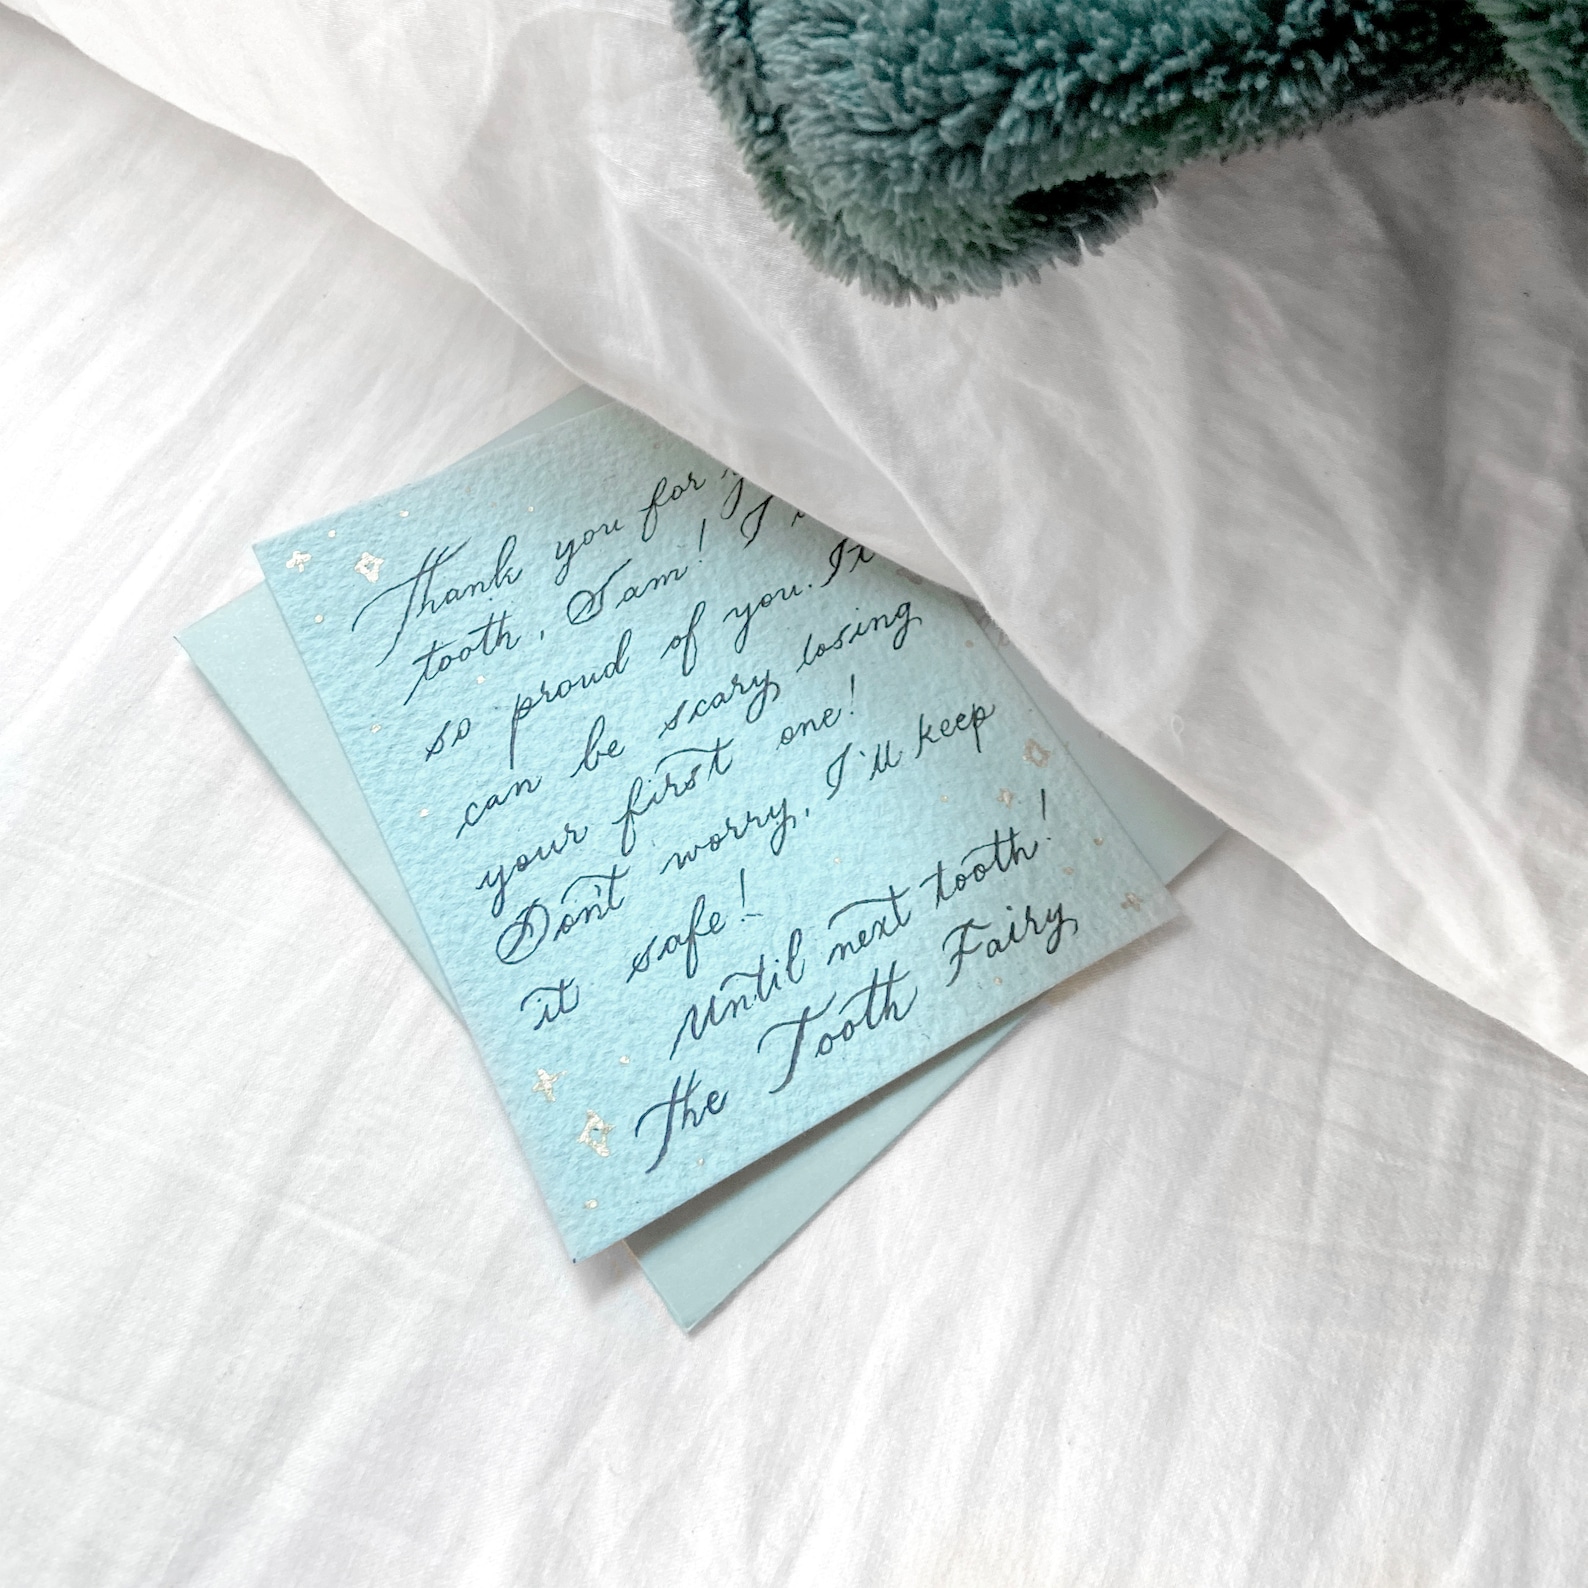 Thank you for
tooth, Sam! I
so proud of you. It
can be scary losing
your first one!
Don't worry, I'll keep
it safe!
Until next tooth!
The Tooth Fairy